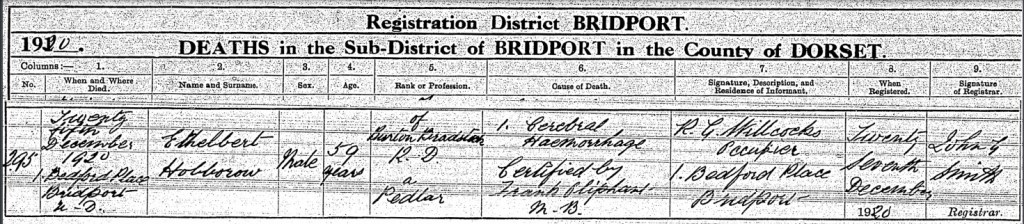 Registration District BRIDPORT.
1920. DEATHS in the Sub-District of BRIDPORT in the County of DORSET.
Columns:— 1. 2. 3. 4. 5. 6. 7. 8. 9.
No. When and Where Died. Name and Surname. Sex. Age. Rank or Profession. Cause of Death. Signature, Description, and Residence of Informant. When Registered. Signature of Registrar.
295
Twenty
fifth
December
1920
1. Bedford Place
Bridport
U. D.
Ethelbert
Hobborow
Male
59
years
of
Burton Bradstock
R. D.
a
Pedlar
1. Cerebral
Haemorrhage
Certified by
Frank Oliphant
M. B.
R. G. Willcocks
Occupier
1. Bedford Place
Bridport
Twenty
Seventh
December
1920
John G
Smith
Registrar.